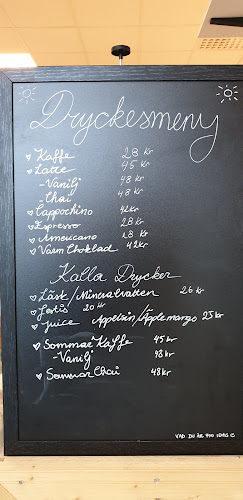 Dryckesmeny
Kaffe 28 kr
Latte 45 kr
-Vanilj 48 kr
-Chai 48 kr
Cappochino 42kr
Espresso 28 kr
Americano 28 kr
Varm Choklad 42kr
Kalla Drycker
Läsk/Mineralvatten 26 kr
Festis 20 kr
Juice Appelsin/Äpplemango 25 kr
Sommar Kaffe 45kr
-Vanilj 48 kr
Sommar Chai 48kr
VAD DU ÄR FIN IDAG C